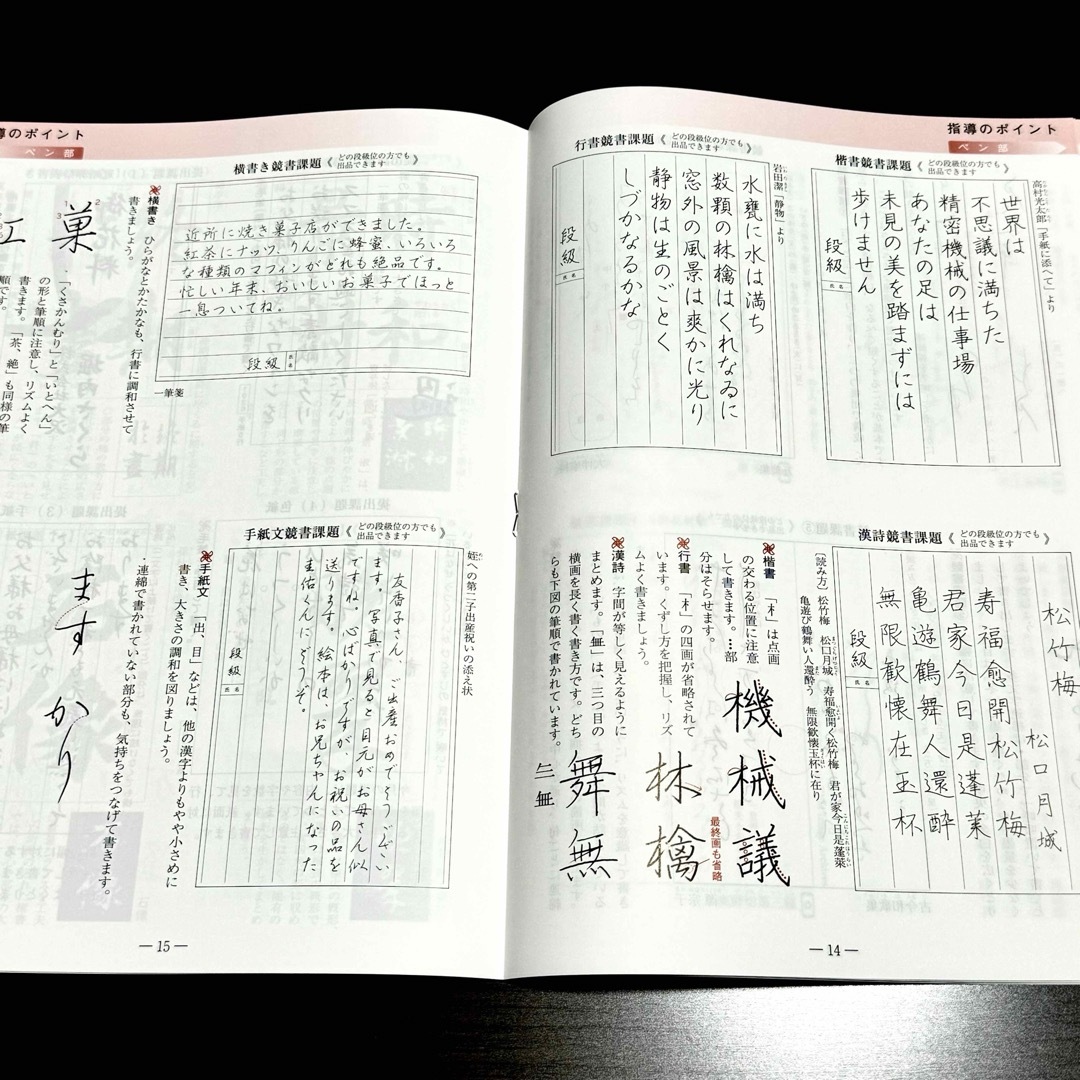 指導のポイント
ペン部
楷書競書課題《どの段級位の方でも出品できます》
高村光太郎「手紙に添へて」より
世界は
不思議に満ちた
精密機械の仕事場
あなたの足は
未見の美を踏まずには
歩けません
段級
氏名
行書競書課題《どの段級位の方でも出品できます》
岩田潔「静物」より
水甕に水は満ち
数顆の林檎はくれなゐに
窓外の風景は爽かに光り
静物は生のごとく
しづかなるかな
段級
氏名
漢詩競書課題《どの段級位の方でも出品できます》
松竹梅
松口月城
寿福愈開松竹梅
君家今日是蓬莱
亀遊鶴舞人還酔
無限歓懐在玉杯
段級
氏名
〔読み方〕松竹梅 松口月城 寿福愈開く松竹梅 君が家今日是蓬莱
亀遊び鶴舞い人還酔う 無限歓懐玉杯に在り
楷書 「木」は点画
の交わる位置に注意
して書きます。…部
分はそらせます。
行書 「木」の四画が省略されて
います。くずし方を把握し、リズ
ムよく書きましょう。
漢詩 字間が等しく見えるように
まとめます。「無」は、三つ目の
横画を長く書く書き方です。どち
らも下図の筆順で書かれています。
機械議
林檎
最終画も省略
舞無
―14―
導のポイント
ペン部
横書き競書課題《どの段級位の方でも出品できます》
近所に焼き菓子店ができました。
紅茶にナッツ、りんごに蜂蜜、いろいろ
な種類のマフィンがどれも絶品です。
忙しい年末、おいしいお菓子でほっと
一息ついてね。
段級
氏名
一筆箋
横書き ひらがなとかたかなも、行書に調和させて
書きましょう。
菓
1
2
3
紅
「くさかんむり」と「いとへん」
の形と筆順に注意し、リズムよく
書きます。「茶、絶」も同様の筆
順です。
手紙文競書課題《どの段級位の方でも出品できます》
姪への第二子出産祝いの添え状
友香子さん、ご出産おめでとうござい
ます。写真で見ると目元がお母さん似
ですね。心ばかりですが、お祝いの品を
送ります。絵本は、お兄ちゃんになった
圭佑くんにどうぞ。
段級
氏名
手紙文 「出、目」などは、他の漢字よりもやや小さめに
書き、大きさの調和を図りましょう。
・連綿で書かれていない部分も、気持ちをつなげて書きます。
ます かり
―15―